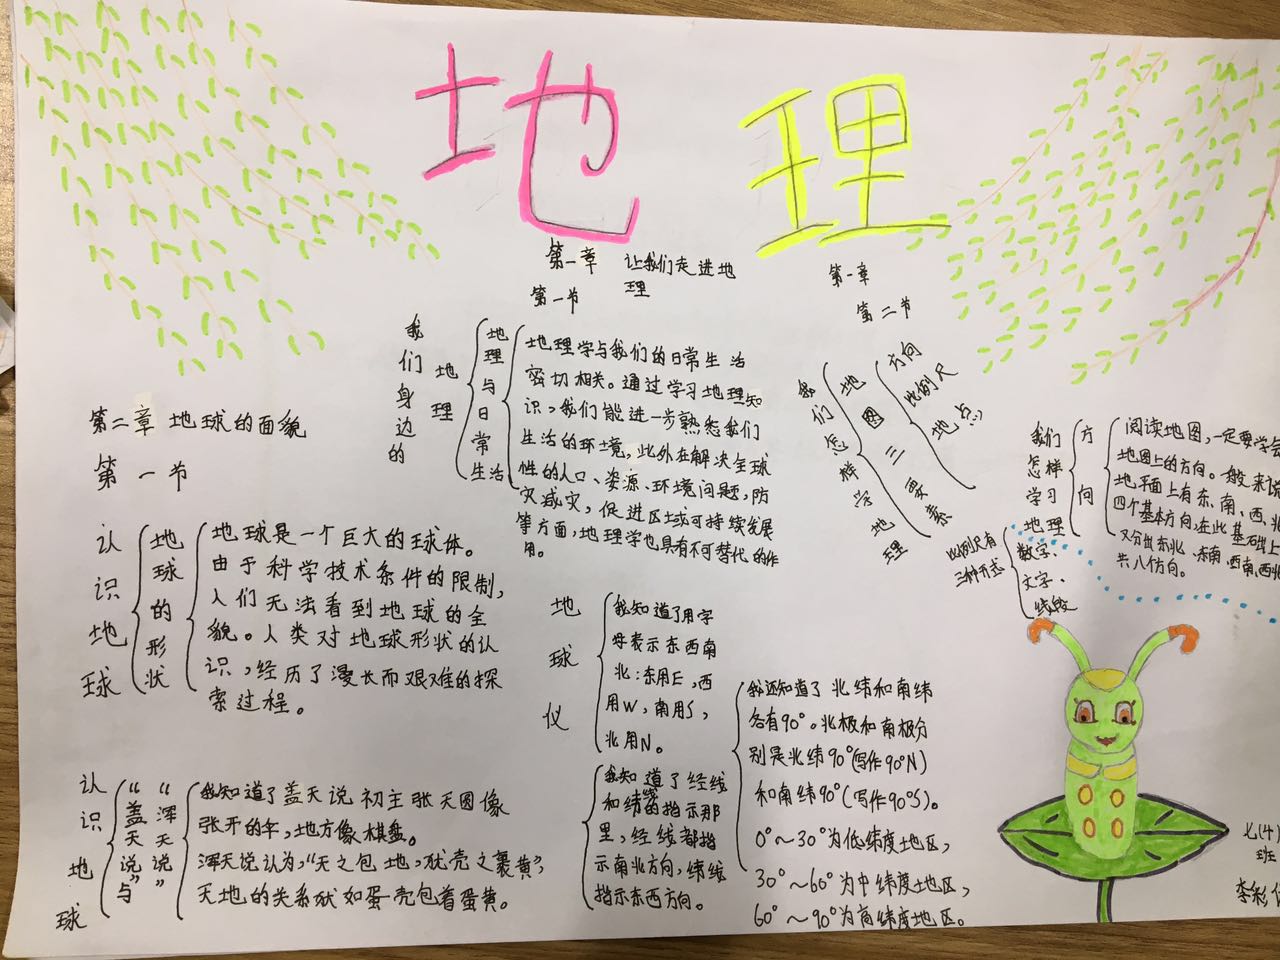 地理
第一章 让我们走进地
理
第一节
我们身边的
地理
地理与日常生活
地理学与我们的日常生活
密切相关。通过学习地理知
识,我们能进一步熟悉我们
生活的环境,此外在解决全球
性的人口、资源、环境问题,防
灾减灾,促进区域可持续发展
等方面,地理学也具有不可替代的作
用。
第一章
第二节
我们怎样学地理
地图三要素
方向
比例尺
地点
我们怎样学习地理
方向
阅读地图,一定要学会
地图上的方向。一般来说
地平面上有东、南、西、北
四个基本方向,在此基础上
又分出东北、东南、西南、西北
共八个方向。
比例尺有
三种方式
数字、
文字、
线段
第二章 地球的面貌
第一节
认识地球
地球的形状
地球是一个巨大的球体。
由于科学技术条件的限制,
人们无法看到地球的全
貌。人类对地球形状的认
识,经历了漫长而艰难的探
索过程。
认识地球
“盖天说”与
“浑天说”
我知道了盖天说初主张天圆像
张开的伞,地方像棋盘。
浑天说认为,“天之包地,犹壳之裹黄”,
天地的关系状如蛋壳包着蛋黄。
地球仪
我知道了用字
母表示东西南
北:东用E,西
用W,南用S,
北用N。
我知道了经线
和纬线的指示那
里,经线都指
示南北方向,纬线
指示东西方向。
我还知道了北纬和南纬
各有90°。北极和南极分
别是北纬90°(写作90°N)
和南纬90°(写作90°S)。
0°~30°为低纬度地区,
30°~60°为中纬度地区,
60°~90°为高纬度地区。
七(4)
班
李彩